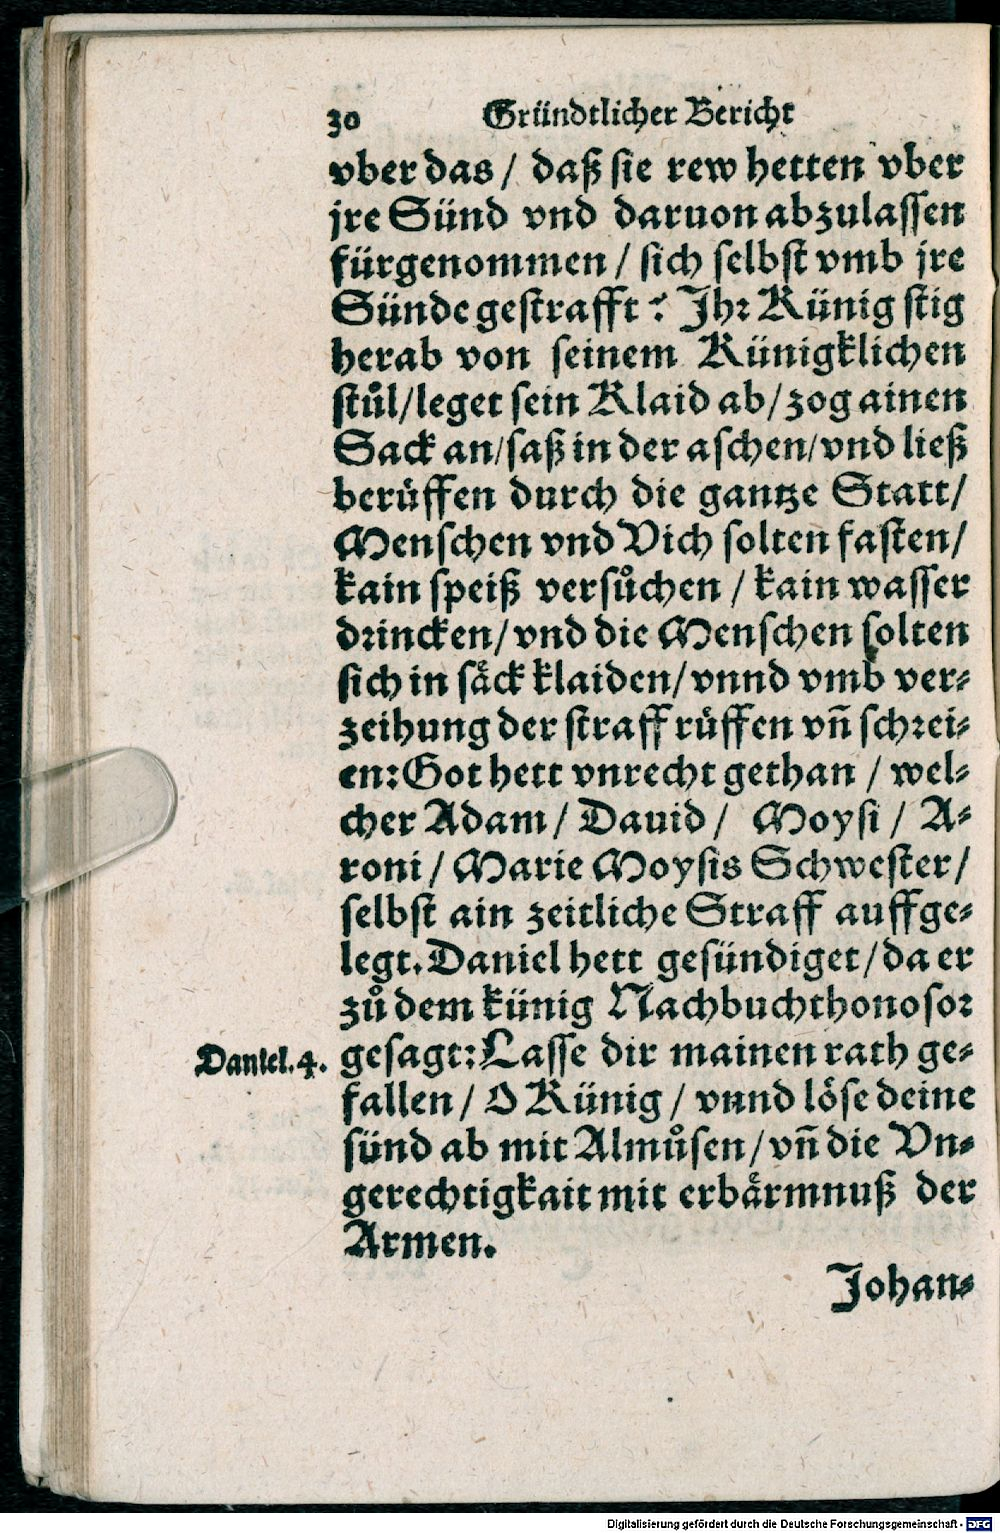 30 Gründtlicher Bericht
vber das / daß sie rew hetten vber
jre Sünd vnd daruon abzulassen
fürgenommen / sich selbst vmb jre
Sünde gestrafft? Jhr Künig stig
herab von seinem Künigklichen
stůl/leget sein Klaid ab/zog ainen
Sack an/saß in der aschen/vnd ließ
berüffen durch die gantze Statt/
Menschen vnd Vich solten fasten/
kain speiß versůchen / kain wasser
drincken/vnd die Menschen solten
sich in säck klaiden/vnnd vmb ver-
zeihung der straff rüffen vñ schrei-
en: Got hett vnrecht gethan / wel-
cher Adam / Dauid / Moysi / A-
roni / Marie Moysis Schwester/
selbst ain zeitliche Straff auffge-
legt. Daniel hett gesündiget/da er
zů dem künig Nachbuchthonosor
Daniel.4. gesagt: Lasse dir mainen rath ge-
fallen / O Künig / vnnd löse deine
sünd ab mit Almůsen/vñ die Vn-
gerechtigkait mit erbärmnuß der
Armen.
Johan-
Digitalisierung gefördert durch die Deutsche Forschungsgemeinschaft - DFG